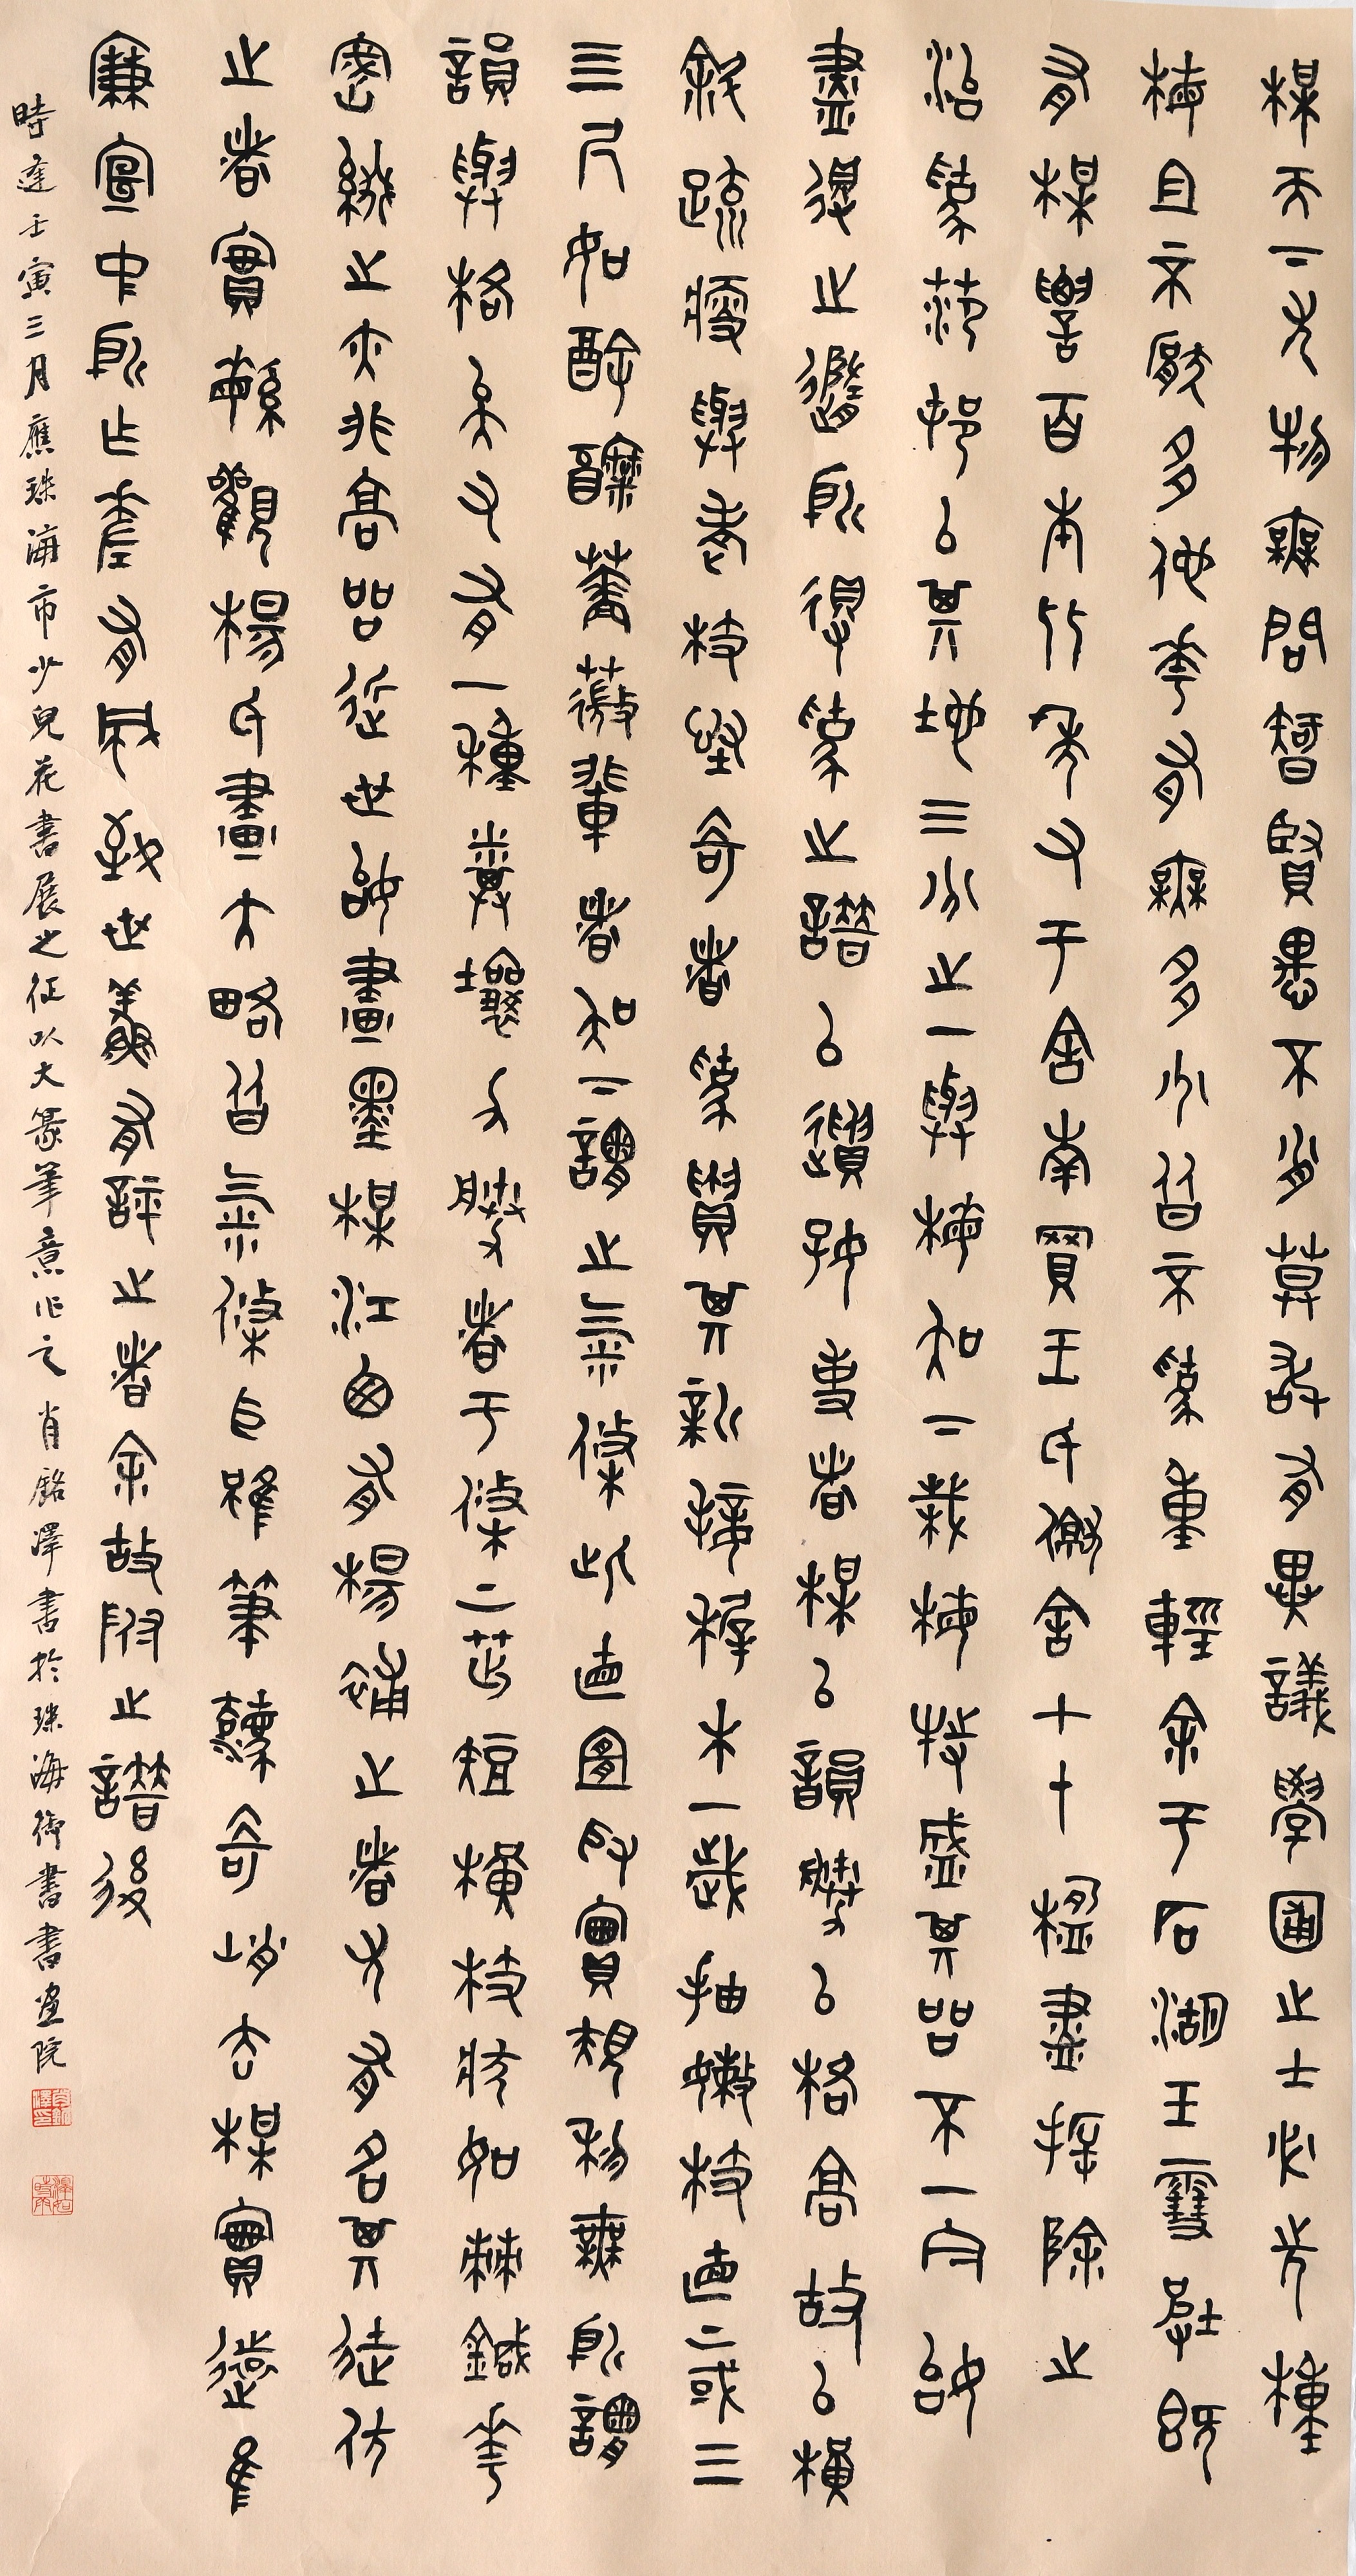 梅天下尤物無問智賢愚不肖莫敢有異議學圃之士必先種
梅且不厭多他花有無多少皆不繫重輕余于石湖玉雪坡既
有梅數百本比年又于舍南買王氏僦舍七十楹盡拆除之
治為范村以其地三分之一與梅吳下栽梅特盛其品不一今始
盡得之隨所得為之譜以遺好事者梅以韻勝以格高故以橫
斜疏瘦與老枝怪奇者為貴其新接穉木一歲抽嫩枝直上或三
四尺如酴醾薔薇輩者吳下謂之氣條此直宜取實規利無所謂
韻與格矣又有一種糞壤力勝者于條上茁短橫枝狀如棘鍼花
密綴之亦非高品近世始畫墨梅江西有楊補之者尤有名其徒仿
之者實繁觀楊氏畫大略皆氣條耳雖筆法奇峭去梅實遠惟
廉宣仲所作差有風致世鮮有評之者余故附之譜後
時逢壬寅三月應珠海市少兒花書展之征以大篆筆意作之肖銘澤書於珠海御書書畫院